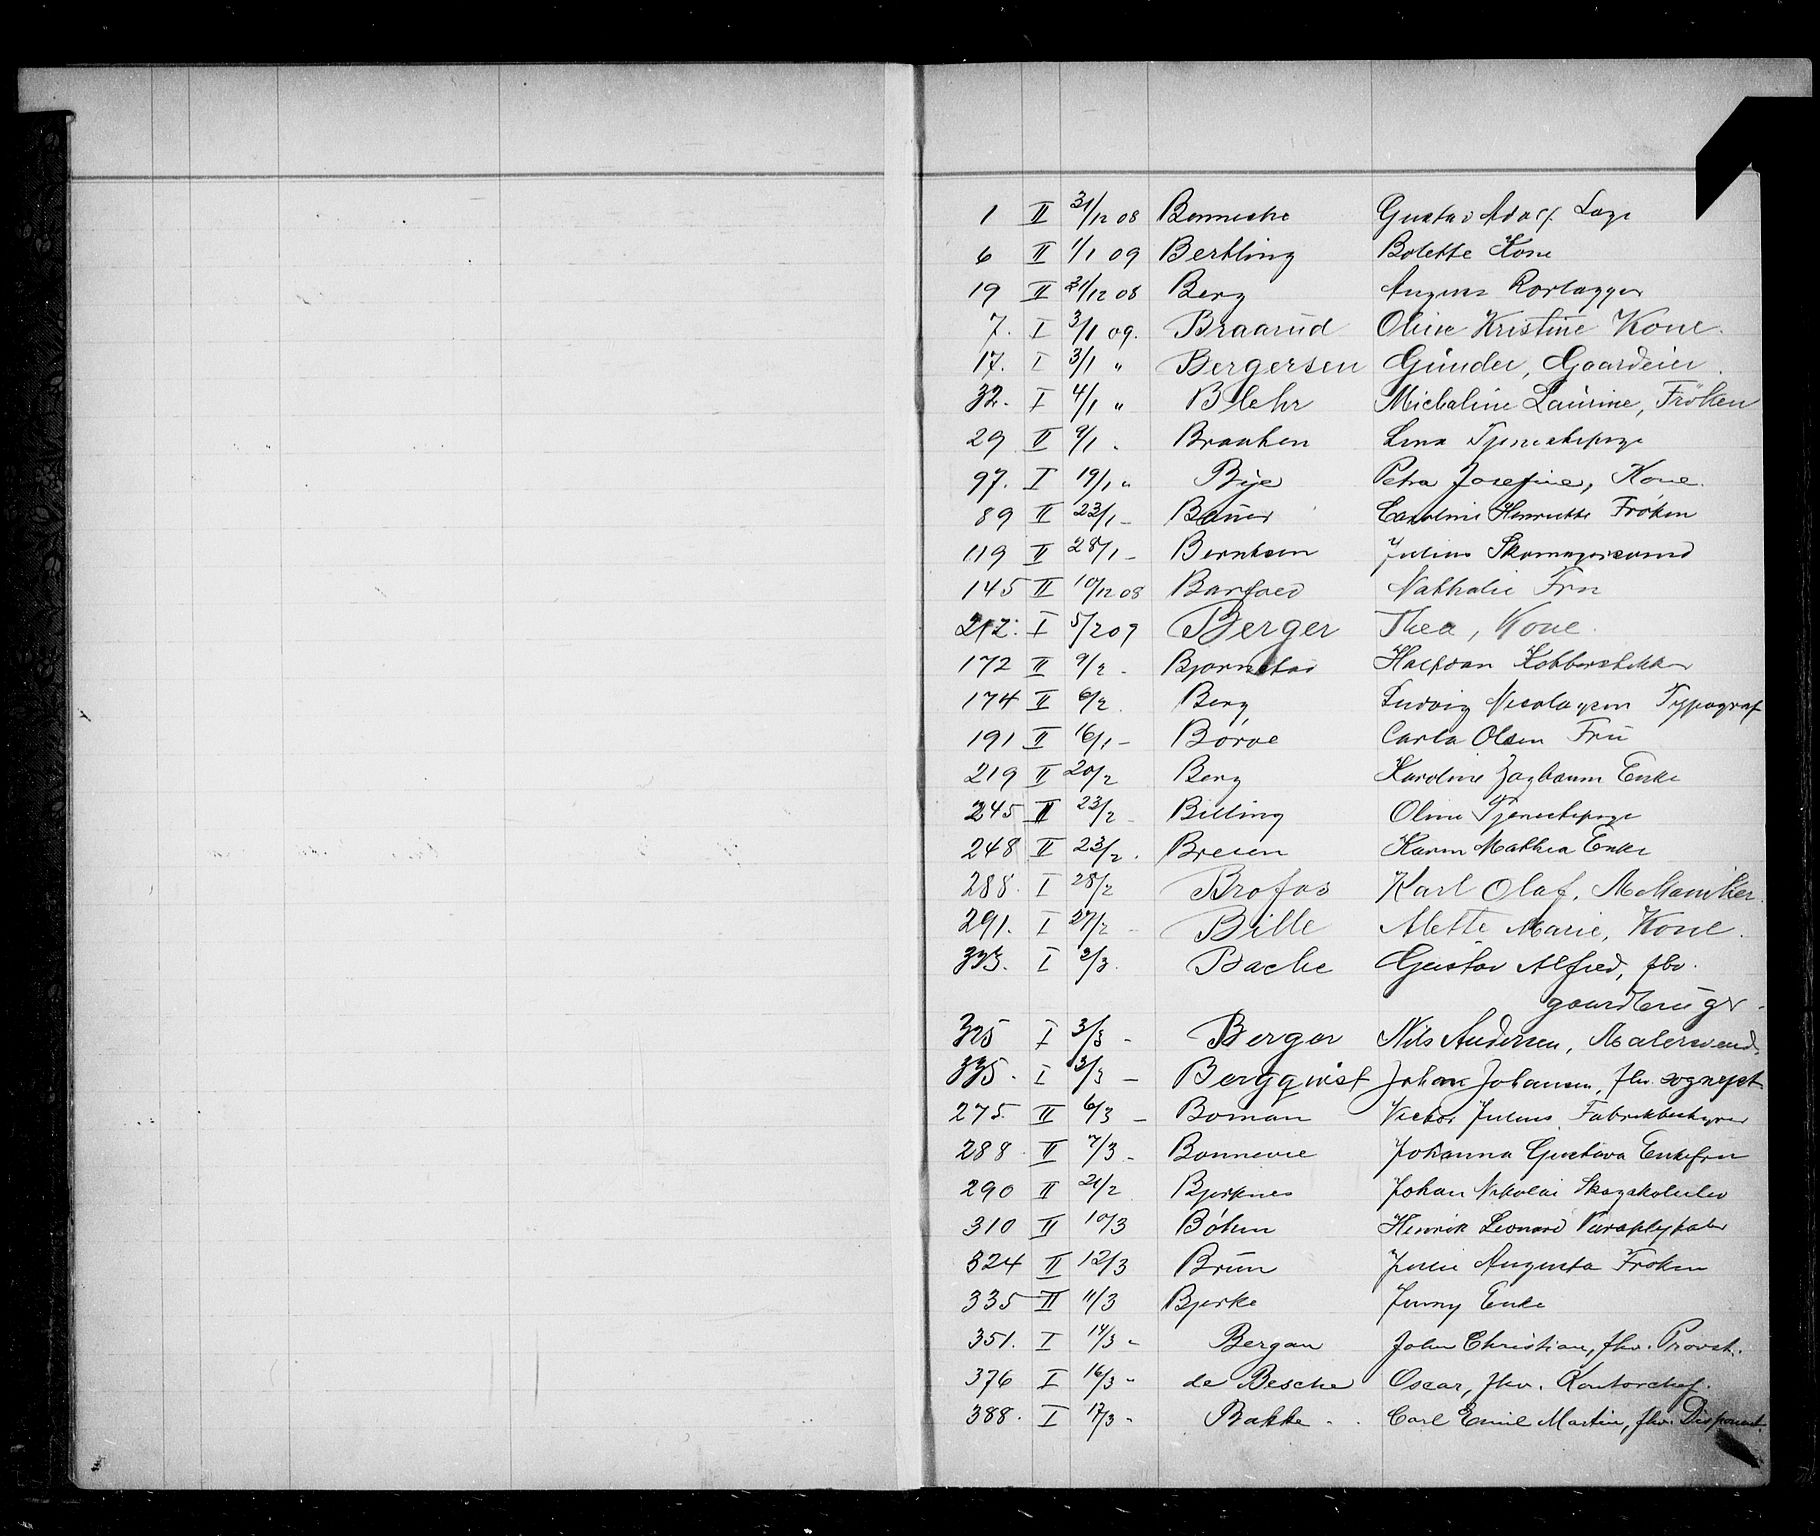 1 II 31/12 08 Bennecke Gustav Adolf Læge
6 II 1/1 09 Bertling Bolette Kone
19 II 31/12 08 Berg August Rørlægger
7. I 3/1 09. Braarud Oline Kristine Kone.
17. I 3/1 " Bergersen Gunder, Gaardeier.
32. I 4/1 " Blehr Michaline Laurine, Frøken
29 II 9/1 . Braaten Lina Tjenestepige
97. I 19/1 " Bye Petra Josefine, Kone.
89 II 23/1 - Bauer Caroline Henriette Frøken
119 II 28/1 - Berntsen Julius Skomagersvend
145 II 10/12 08 Barfoed Nathalie Fru
212. I 5/2 09 Berger Thea, Kone.
172 II 9/2 - Bjørnstad Halfdan Kobberstikker
174 II 6/2 . Berg Ludvig Nicolaysen Typograf
191 II 16/1 - Børve Carla Olsen Fru
219 II 20/2 Berg Karoline Enke
245 II 23/2 - Billing Oline Tjenestepige
248 II 23/2 . Bresen Karen Mathea Enke
288. I 28/2 Brofos Karl Olaf, Mekaniker.
291. I 27/2 - Bille Mette Marie, Kone.
333. I 2/3 . Bache Gustav Alfred, fhv.
gaardbruger.
325 I 3/3 - Berger Nils Andersen, Malersvend.
335. I 3/3 - Bergqvist Johan Johansen, fhv. sognepr.
275. II 6/3 - Boman Victor Julius Fabrikbestyrer
288. II 7/3 - Bonnevie Johanna Gustava Enkefru
290 II 21/2 Bjerknes Johan Nikolai Skogskoleelev
310 II 10/3 Böhm Henrik Leonard Paraplyfabr
324 II 12/3 Brun Julie Augusta Frøken
335 II 11/3 Bjerke Jenny Enke
351. I 14/3 - Bergan John Christian, fhv. Provst.
376 I 16/3 - de Besche Oscar, fhv. Kontorchef.
388. I 17/3 - Bakke Carl Emil Martin, fhv. Disponent.